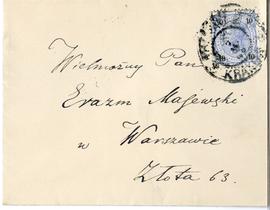 Wielmożny Pan
Erazm Majewski
w Warszawie
Złota 63.